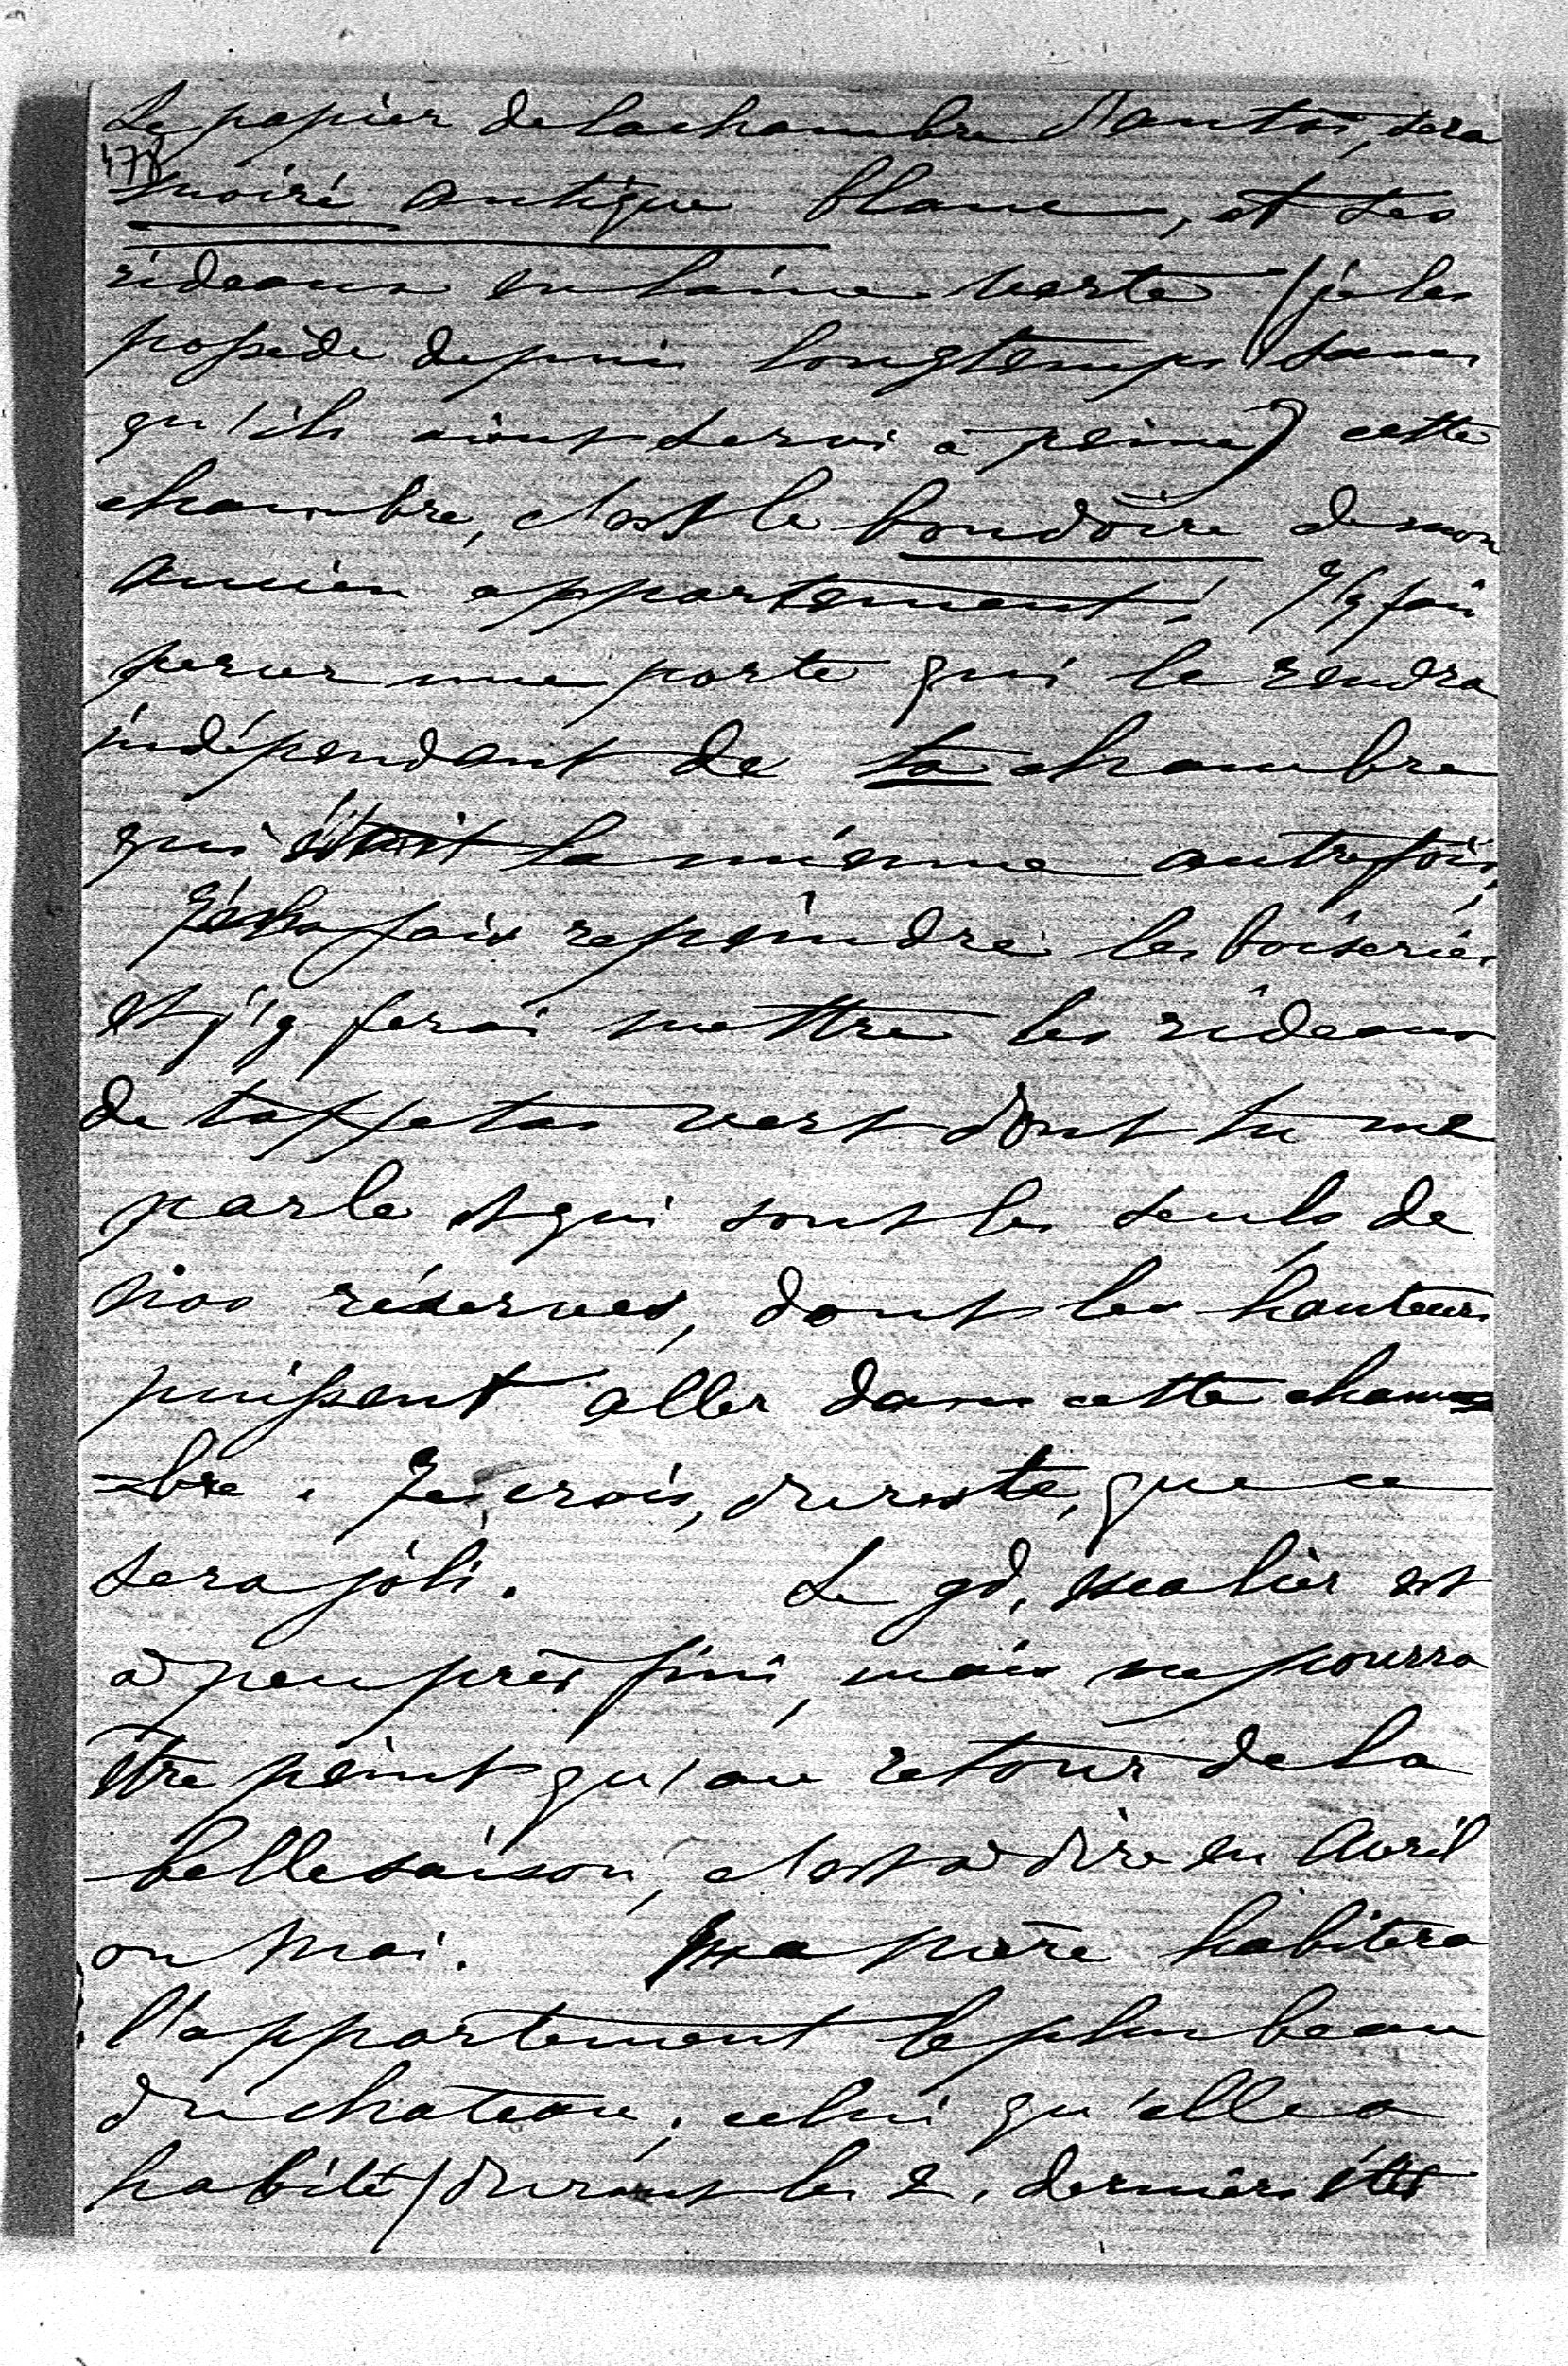 Le papier de la chambre d'Antoi, sera
478
moiré antique blanc, et ses
rideaux en laine verte (je les
possède depuis longtemps sans
qu'ils aient servi à peine) cette
chambre, c'est le boudoire de mon
ancien appartement! J'y fais
percer une porte qui le rendra
indépendant de ta chambre
qui était la mienne autrefois,
fais repeindre les boiseries
et j'y ferai mettre les rideaux
de taffetas vert dont tu me
parle et qui sont les seuls de
nos réserves, dont les hauteurs
puissent aller dans cette cham=
=bre. Je crois, du reste, que ce
sera joli. Le gd. escalier est
à peu près fini, mais ne pourra
être peint qu'au retour de la
belle saison, c'est à dire en Avril
ou Mai. Ma mère habitera
l'appartement le plus beau
du chateau, celui qu'elle a
habité durant les 2. derniers étés